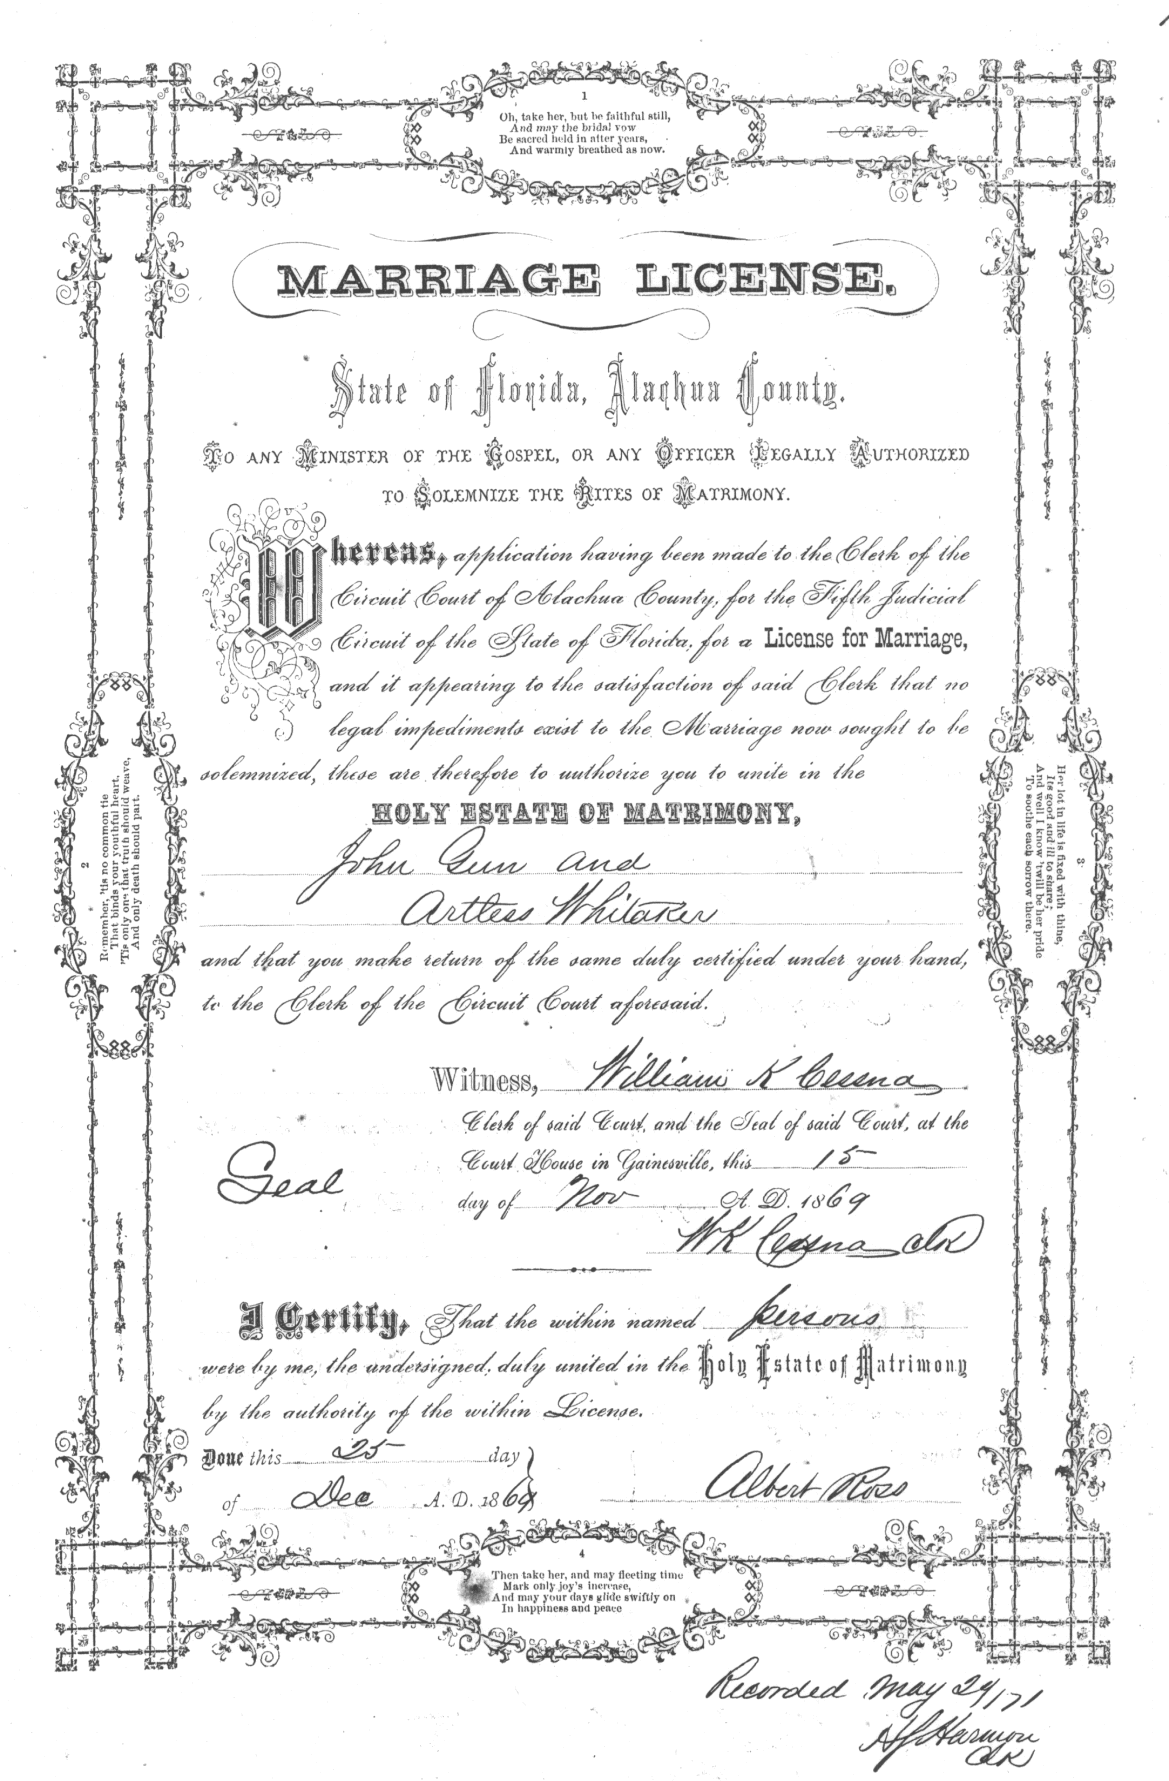 1
Oh, take her, but be faithful still,
And may the bridal vow
Be sacred held in after years,
And warmly breathed as now.
MARRIAGE LICENSE.
State of Florida, Alachua County.
TO ANY MINISTER OF THE GOSPEL, OR ANY OFFICER LEGALLY AUTHORIZED
TO SOLEMNIZE THE RITES OF MATRIMONY.
Whereas, application having been made to the Clerk of the
Circuit Court of Alachua County, for the Fifth Judicial
Circuit of the State of Florida, for a License for Marriage,
and it appearing to the satisfaction of said Clerk that no
legal impediments exist to the Marriage now sought to be
solemnized, these are therefore to authorize you to unite in the
HOLY ESTATE OF MATRIMONY,
John Gun and
Artless Whitaker
and that you make return of the same duly certified under your hand,
to the Clerk of the Circuit Court aforesaid.
Witness, William K Cessna
Clerk of said Court, and the Seal of said Court, at the
Court House in Gainesville, this 15
Seal
day of Nov A. D. 1869
WK Cessna Clk
I Certify, That the within named persons
were by me, the undersigned, duly united in the Holy Estate of Matrimony
by the authority of the within License.
Done this 25 day
of Dec A. D. 1869
Albert Ross
2
Remember, 'tis no common tie
That binds your youthful heart,
'Tis one that only truth should weave,
And only death should part.
3
Her lot in life is fixed with thine,
Its good and ill to share;
And well I know 'twill be her pride
To soothe each sorrow there.
4
Then take her, and may fleeting time
Mark only joy's increase,
And may your days glide swiftly on
In happiness and peace
Recorded May 29/71
Harmon
Clk